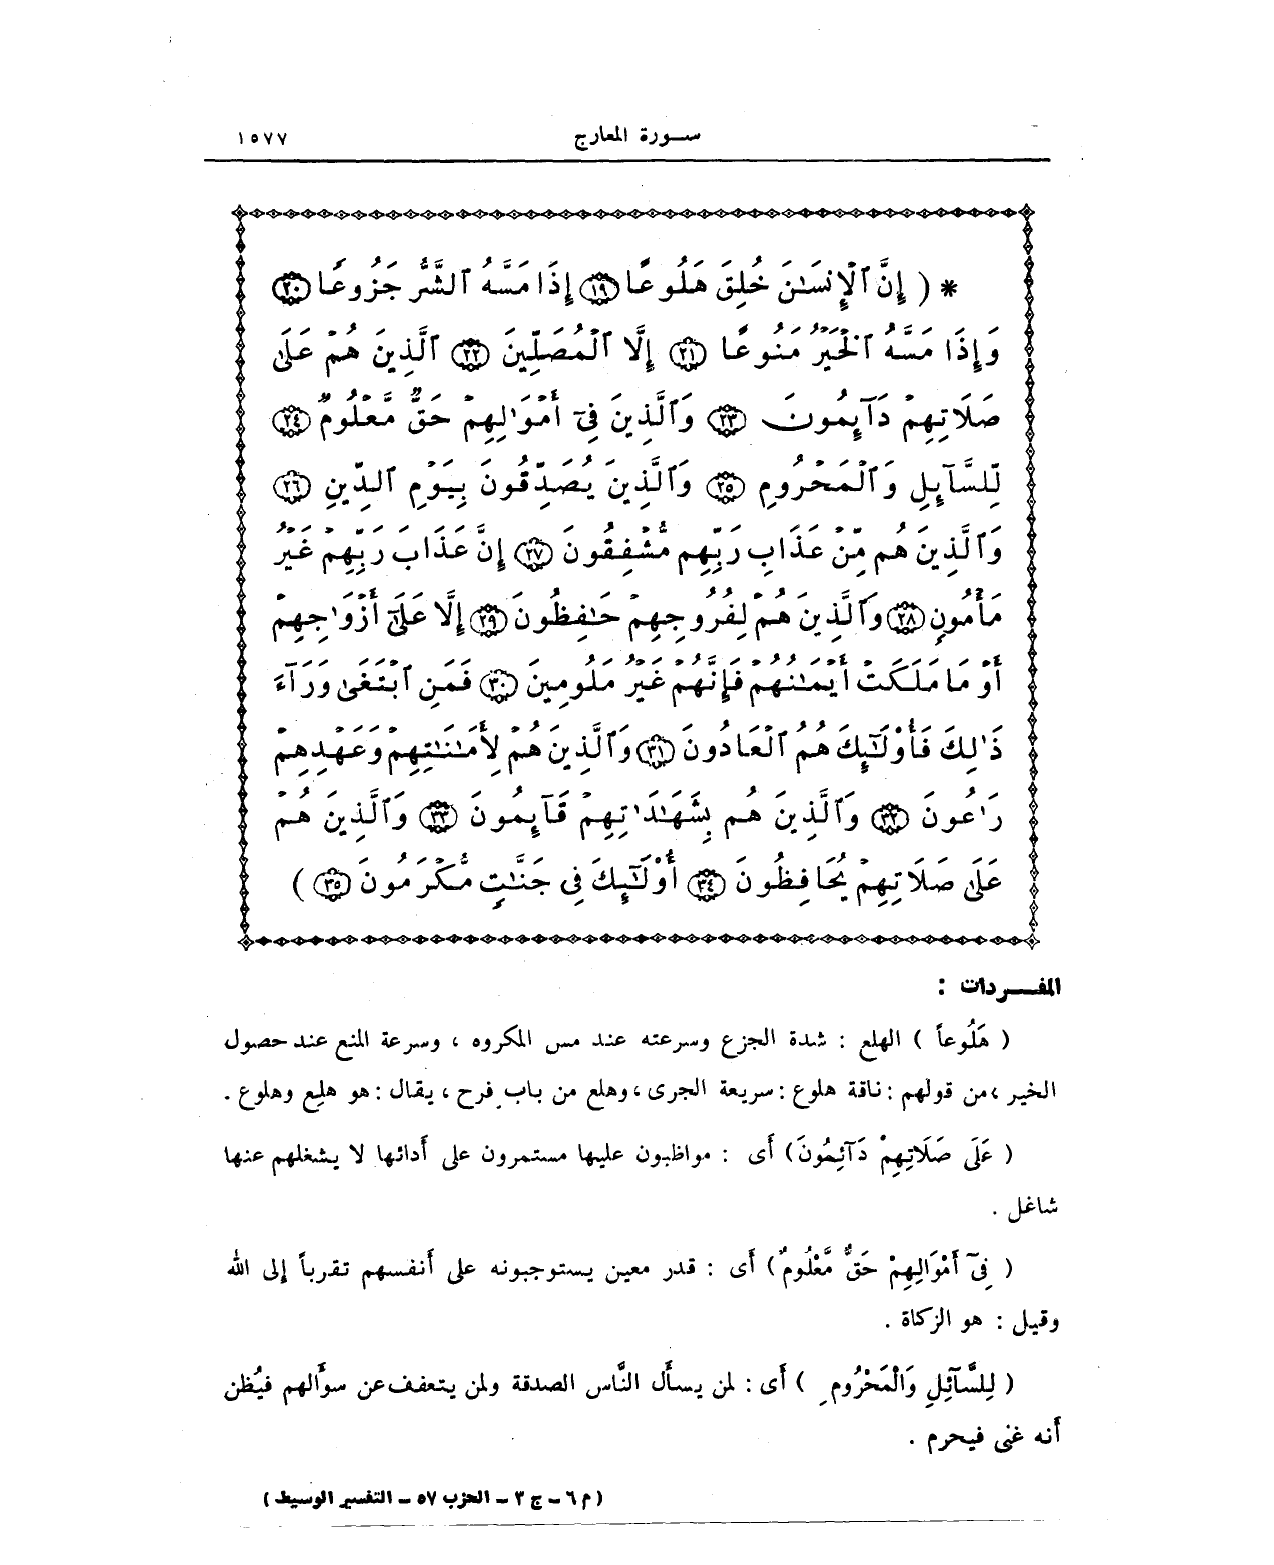 سورة المعارج ١٥٧٧
* ( إِنَّ ٱلْإِنسَٰنَ خُلِقَ هَلُوعًا ⑲ إِذَا مَسَّهُ ٱلشَّرُّ جَزُوعًا ⑳
وَإِذَا مَسَّهُ ٱلْخَيْرُ مَنُوعًا ㉑ إِلَّا ٱلْمُصَلِّينَ ㉒ ٱلَّذِينَ هُمْ عَلَىٰ
صَلَاتِهِمْ دَآئِمُونَ ㉓ وَٱلَّذِينَ فِىٓ أَمْوَٰلِهِمْ حَقٌّ مَّعْلُومٌ ㉔
لِّلسَّآئِلِ وَٱلْمَحْرُومِ ㉕ وَٱلَّذِينَ يُصَدِّقُونَ بِيَوْمِ ٱلدِّينِ ㉖
وَٱلَّذِينَ هُم مِّنْ عَذَابِ رَبِّهِم مُّشْفِقُونَ ㉗ إِنَّ عَذَابَ رَبِّهِمْ غَيْرُ
مَأْمُونٍ ㉘ وَٱلَّذِينَ هُمْ لِفُرُوجِهِمْ حَٰفِظُونَ ㉙ إِلَّا عَلَىٰٓ أَزْوَٰجِهِمْ
أَوْ مَا مَلَكَتْ أَيْمَٰنُهُمْ فَإِنَّهُمْ غَيْرُ مَلُومِينَ ㉚ فَمَنِ ٱبْتَغَىٰ وَرَآءَ
ذَٰلِكَ فَأُو۟لَٰٓئِكَ هُمُ ٱلْعَادُونَ ㉛ وَٱلَّذِينَ هُمْ لِأَمَٰنَٰتِهِمْ وَعَهْدِهِمْ
رَٰعُونَ ㉜ وَٱلَّذِينَ هُم بِشَهَٰدَٰتِهِمْ قَآئِمُونَ ㉝ وَٱلَّذِينَ هُمْ
عَلَىٰ صَلَاتِهِمْ يُحَافِظُونَ ㉞ أُو۟لَٰٓئِكَ فِى جَنَّٰتٍ مُّكْرَمُونَ ㉟ )
المفردات :
( هَلُوعاً ) الهلع : شدة الجزع وسرعته عند مس المكروه ، وسرعة المنع عند حصول
الخير ، من قولهم : ناقة هلوع : سريعة الجرى ، وهلع من باب فرح ، يقال : هو هلِع وهلوع .
( عَلَى صَلَاتِهِمْ دَآئِمُونَ) أَى : مواظبون عليها مستمرون على أدائها لا يشغلهم عنها
شاغل .
( فِىٓ أَمْوَالِهِمْ حَقٌّ مَّعْلُومٌ ) أَى : قدر معين يستوجبونه على أَنفسهم تقرباً إِلى الله
وقيل : هو الزكاة .
( لِلسَّآئِلِ وَالْمَحْرُومِ ) أَى : لمن يسأَل النَّاس الصدقة ولمن يتعفف عن سوُّالهم فيُظن
أَنه غنى فيحرم .
( م ٦ – ج ٣ – الحزب ٥٧ – التفسير الوسيط )